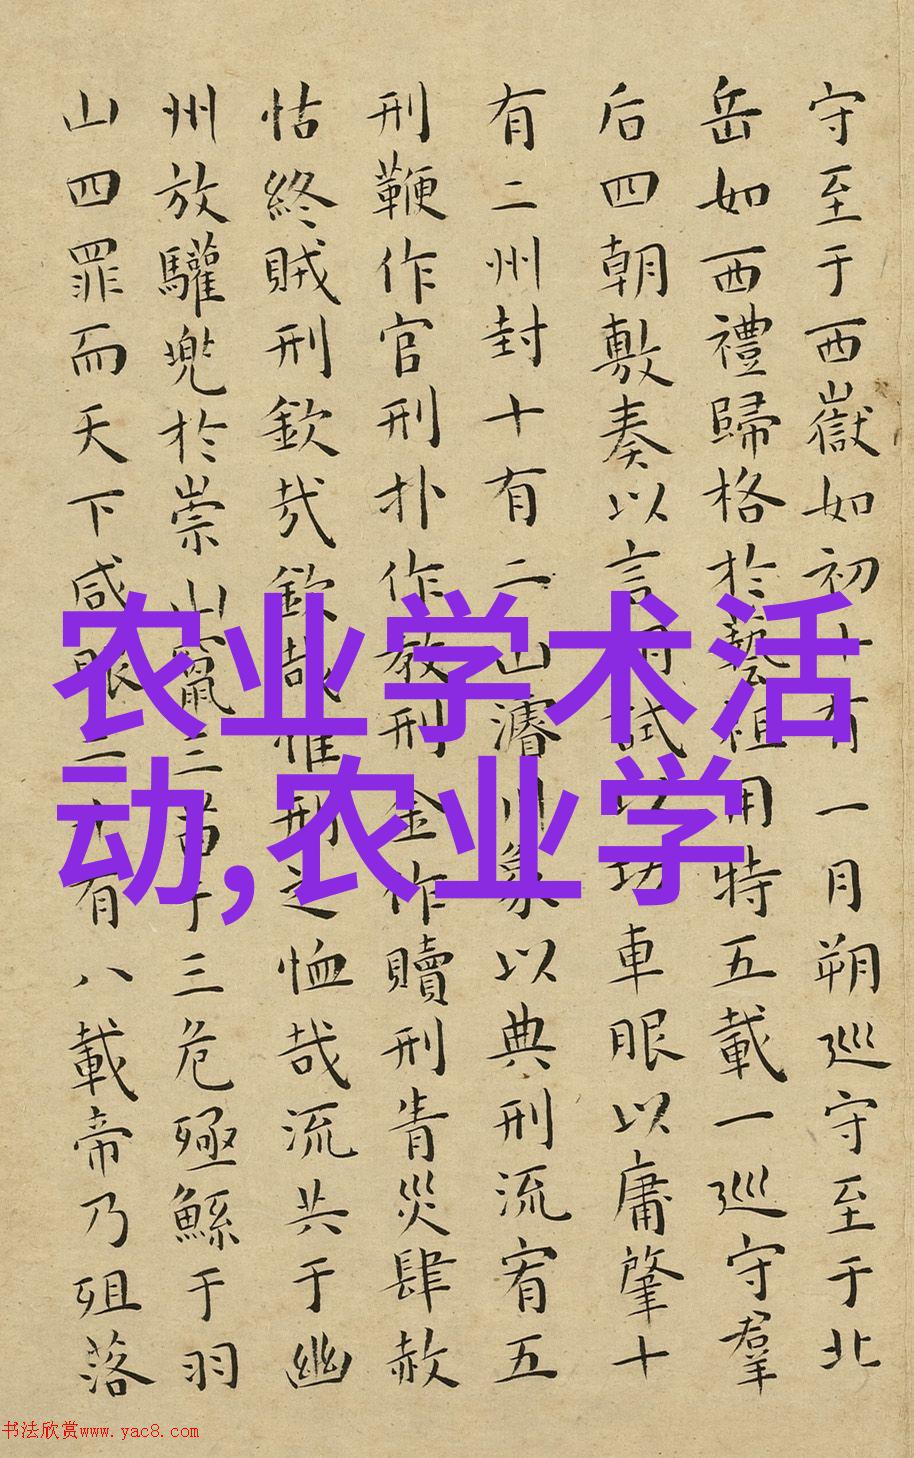 守至于西嶽如初十有一月朔巡守至于北
岳如西禮歸格於藝祖用特五載一巡守羣
后四朝敷奏以言明試以功車服以庸肇十
有二州封十有二山濬川象以典刑流宥五
刑鞭作官刑扑作教刑金作贖刑眚災肆赦
怙終賊刑欽哉欽哉惟刑之恤哉流共于幽
州放驩兜於崇山竄三苗于三危殛鯀于羽
山四罪而天下咸服二十有八載帝乃殂落
农业学术活
动,农业学
书法欣赏www.yac8.com